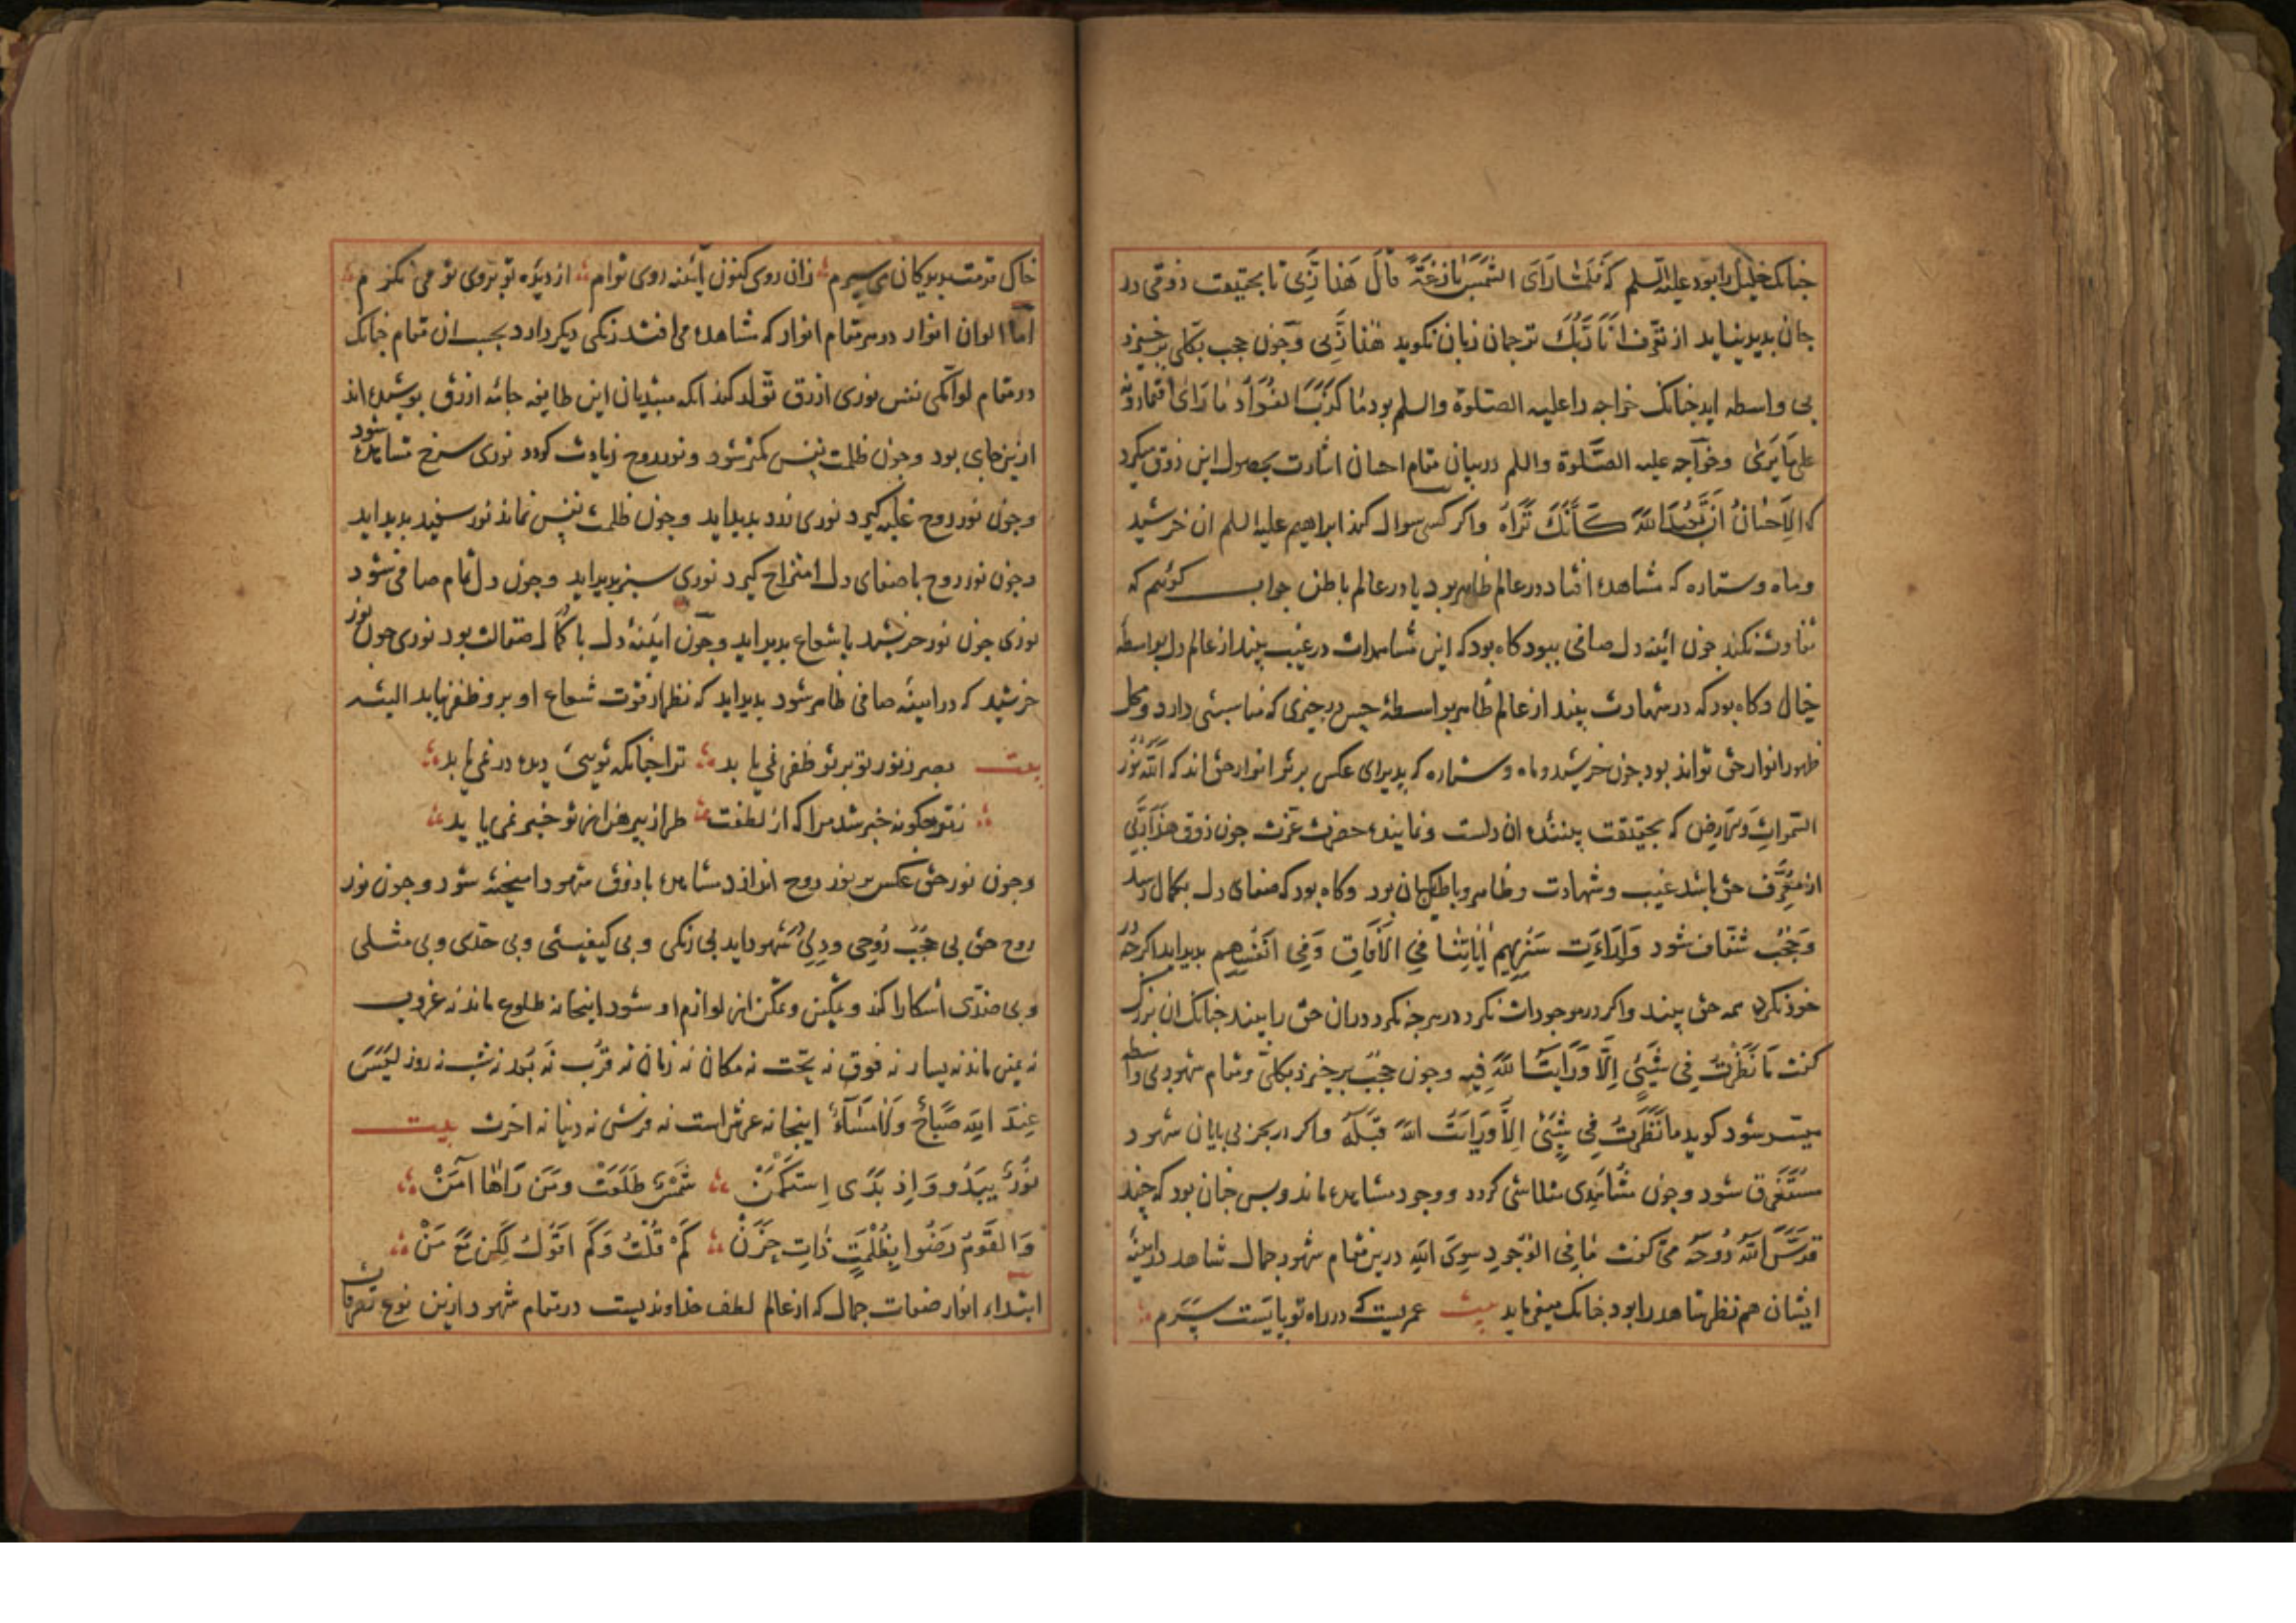 چنانک خلیل را بود علیه السلم که فَلَمَّا رَأَی الشَّمْسَ بَازِغَةً قَالَ هَذَا رَبِّی تا بحقیقت ذوقی در
جان بدید نیاید از تعرف اَنَا رَبُّکَ ترجمان زبان نکوید هَذَا رَبِّی وجون حجب بکلی برخیزد
بی واسطه اید جنانک خواجه را علیه الصلوة والسلم بود مَا کَذَبَ الفُؤَادُ مَا رَأَی افتمارونه
علی مَا یَرَی وخواجه علیه الصَّلوة والسلم در بیان مقام احسان اشارت بحصول این ذوق میکرد
که الاِحْسَانُ اَنْ تَعْبُدَ اللهَ کَأَنَّکَ تَرَاهُ واکر کسی سوال کند ابراهیم علیه السلم ان خرشید
وماه وستاره که مشاهده افتاد در عالم ظاهر بود یا در عالم باطن جواب کوئیم که
تفاوت نکند جون اینه دل صافی ببود کاه بود که این مشاهدات در غیب بیند از عالم دل بواسطه
خیال وکاه بود که در شهادت بیند از عالم ظاهر بواسطهٔ حس در جیزی که مناسبتی دارد ومحل
ظهور انوار حق تواند بود جون خرشید وماه وستاره که بدیرای عکس برتو انوار حق اند که اَللهُ نُوْرُ
السَّموَاتِ وَالاَرضِ که بحقیقت بیننده ان دلست ونماینده حضرت عزت جون ذوق هَذَا رَبِّی
از مُعَرِّف حق باشد غیب وشهادت وظاهر وباطن یکسان بود وکاه بود که صفای دل بکمال رسد
وحُجُبْ شفاف شود وَاِرَاءَتِ سَنُرِیهِمْ اٰیَاتِنَا فِی الاٰفَاقِ وَفِی اَنْفُسِهِمْ بدید اید اکر در
خود نکرد همه حق بیند واکر در موجودات نکرد در هرجه نکرد در ان حق را بیند جنانک ان بزرک
کفت مَا نَظَرْتُ فِی شَیْئٍ اِلَّا وَرَایتُ اللهَ فِیهِ وجون حجب برخیزد بکلی ومقام شهود بی واسطه
میسر شود کوید مَا نَظَرْتُ فِی شَیْئٍ اِلَّا وَرَایْتُ اللهَ قَبْلَهُ واکر در بحر بی بایان شهود
مُسْتَغْرَق شود وجون مشاهدی متلاشی کردد ووجود مشاهده ماند وبس جنان بود که جنید
قَدَّسَ اللهُ رُوحَهُ می کفت مَا فِی الوُجُودِ سِوَی اللهِ درین مقام شهود جمال شاهد در اینهٔ
ایشان هم نظر شاهد را بود جنانک میفرماید بیت عمریست که در راه تو بایست سَرَم
خاک قدمت بدیدکان می سپرم زان روی کنون آینه روی توام از دیده تو بروی تو می نکرم
اَمّا الوان انوار در هر مقام انوار که مشاهده می افتد رنکی دیکر دارد بحسب ان مقام جنانک
در مقام لوامکی نفس نوری ازرق تولد کند انکه مبتدیان این طایفه جامه ازرق بوشیده اند
ازینجای بود وجون ظلمت نفس کمتر شود ونور روح زیادت کردد نوری سرخ مشاهده شود
وجون نور روح غلبه کیرد نوری زرد بدید اید وجون ظلمت نفس نماند نور سفید بدید اید
وجون نور روح با صفای دل امتزاج کیرد نوری سبز بدید اید وجون دل تمام صافی شود
نوری جون نور خرشید با شعاع بدید اید وجون اینهٔ دل با کمال صقالت بود نوری جون نور
خرشید که در اینهٔ صافی ظاهر شود بدید اید که نظر از قوت شعاع او برو ظفر نیابد البته
بیت بصر ز نور تو بر تو ظفر نمی یابد ترا جنانکه توئی دیده در نمی یابد
ز تو جکونه خبر شد مرا که از لطفت طراز بیرهن از تو خبر نمی یابد
وجون نور حق عکس بر نور روح اندازد مشاهده با ذوق شهود امیخته شود وجون نور
روح حق بی حجب رُوحی ودِلِی در شهود اید بی رنکی وبی کیفیتی وبی حدّی وبی مثلی
وبی ضدّی اشکارا کند وتمکین وتمکن از لوازم او شود اینجا نه طلوع ماند نه غروب
نه یمین ماند نه یسار نه فوق نه تحت نه مکان نه زمان نه قُرب نه بُعد نه شب نه روز لَیْسَ
عِنْدَ اللهِ صَبَاحٌ وَلَا مَسَاءٌ اینجا نه عرش است نه فرش نه دنیا نه اخرت بیت
نُورٌ یَبْدُو وَاِذْ بَدَی اِسْتَمْکَنْ شَمْسٌ طَلَعَتْ وَمَنْ رَاٰهَا اٰمَنْ
وَالقَوْمُ رَضُوا بِظُلْمَةٍ ذَاتِ حَزَنْ کَمْ قُلْتُ وَکَمْ اَقُولُ لَکِنْ مَعَ مَنْ
ابتداء انوار صفات جمال که از عالم لطف خداوندیست در مقام شهود ازین نوع تصرفات